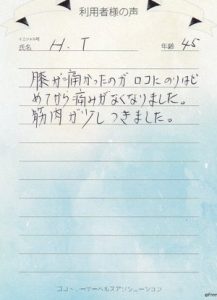 利用者様の声
イニシャル可
氏名 H.T 年齢 45
膝が痛かったのが ロコにのりはじ
めてから痛みがなくなりました。
筋肉が少しつきました。